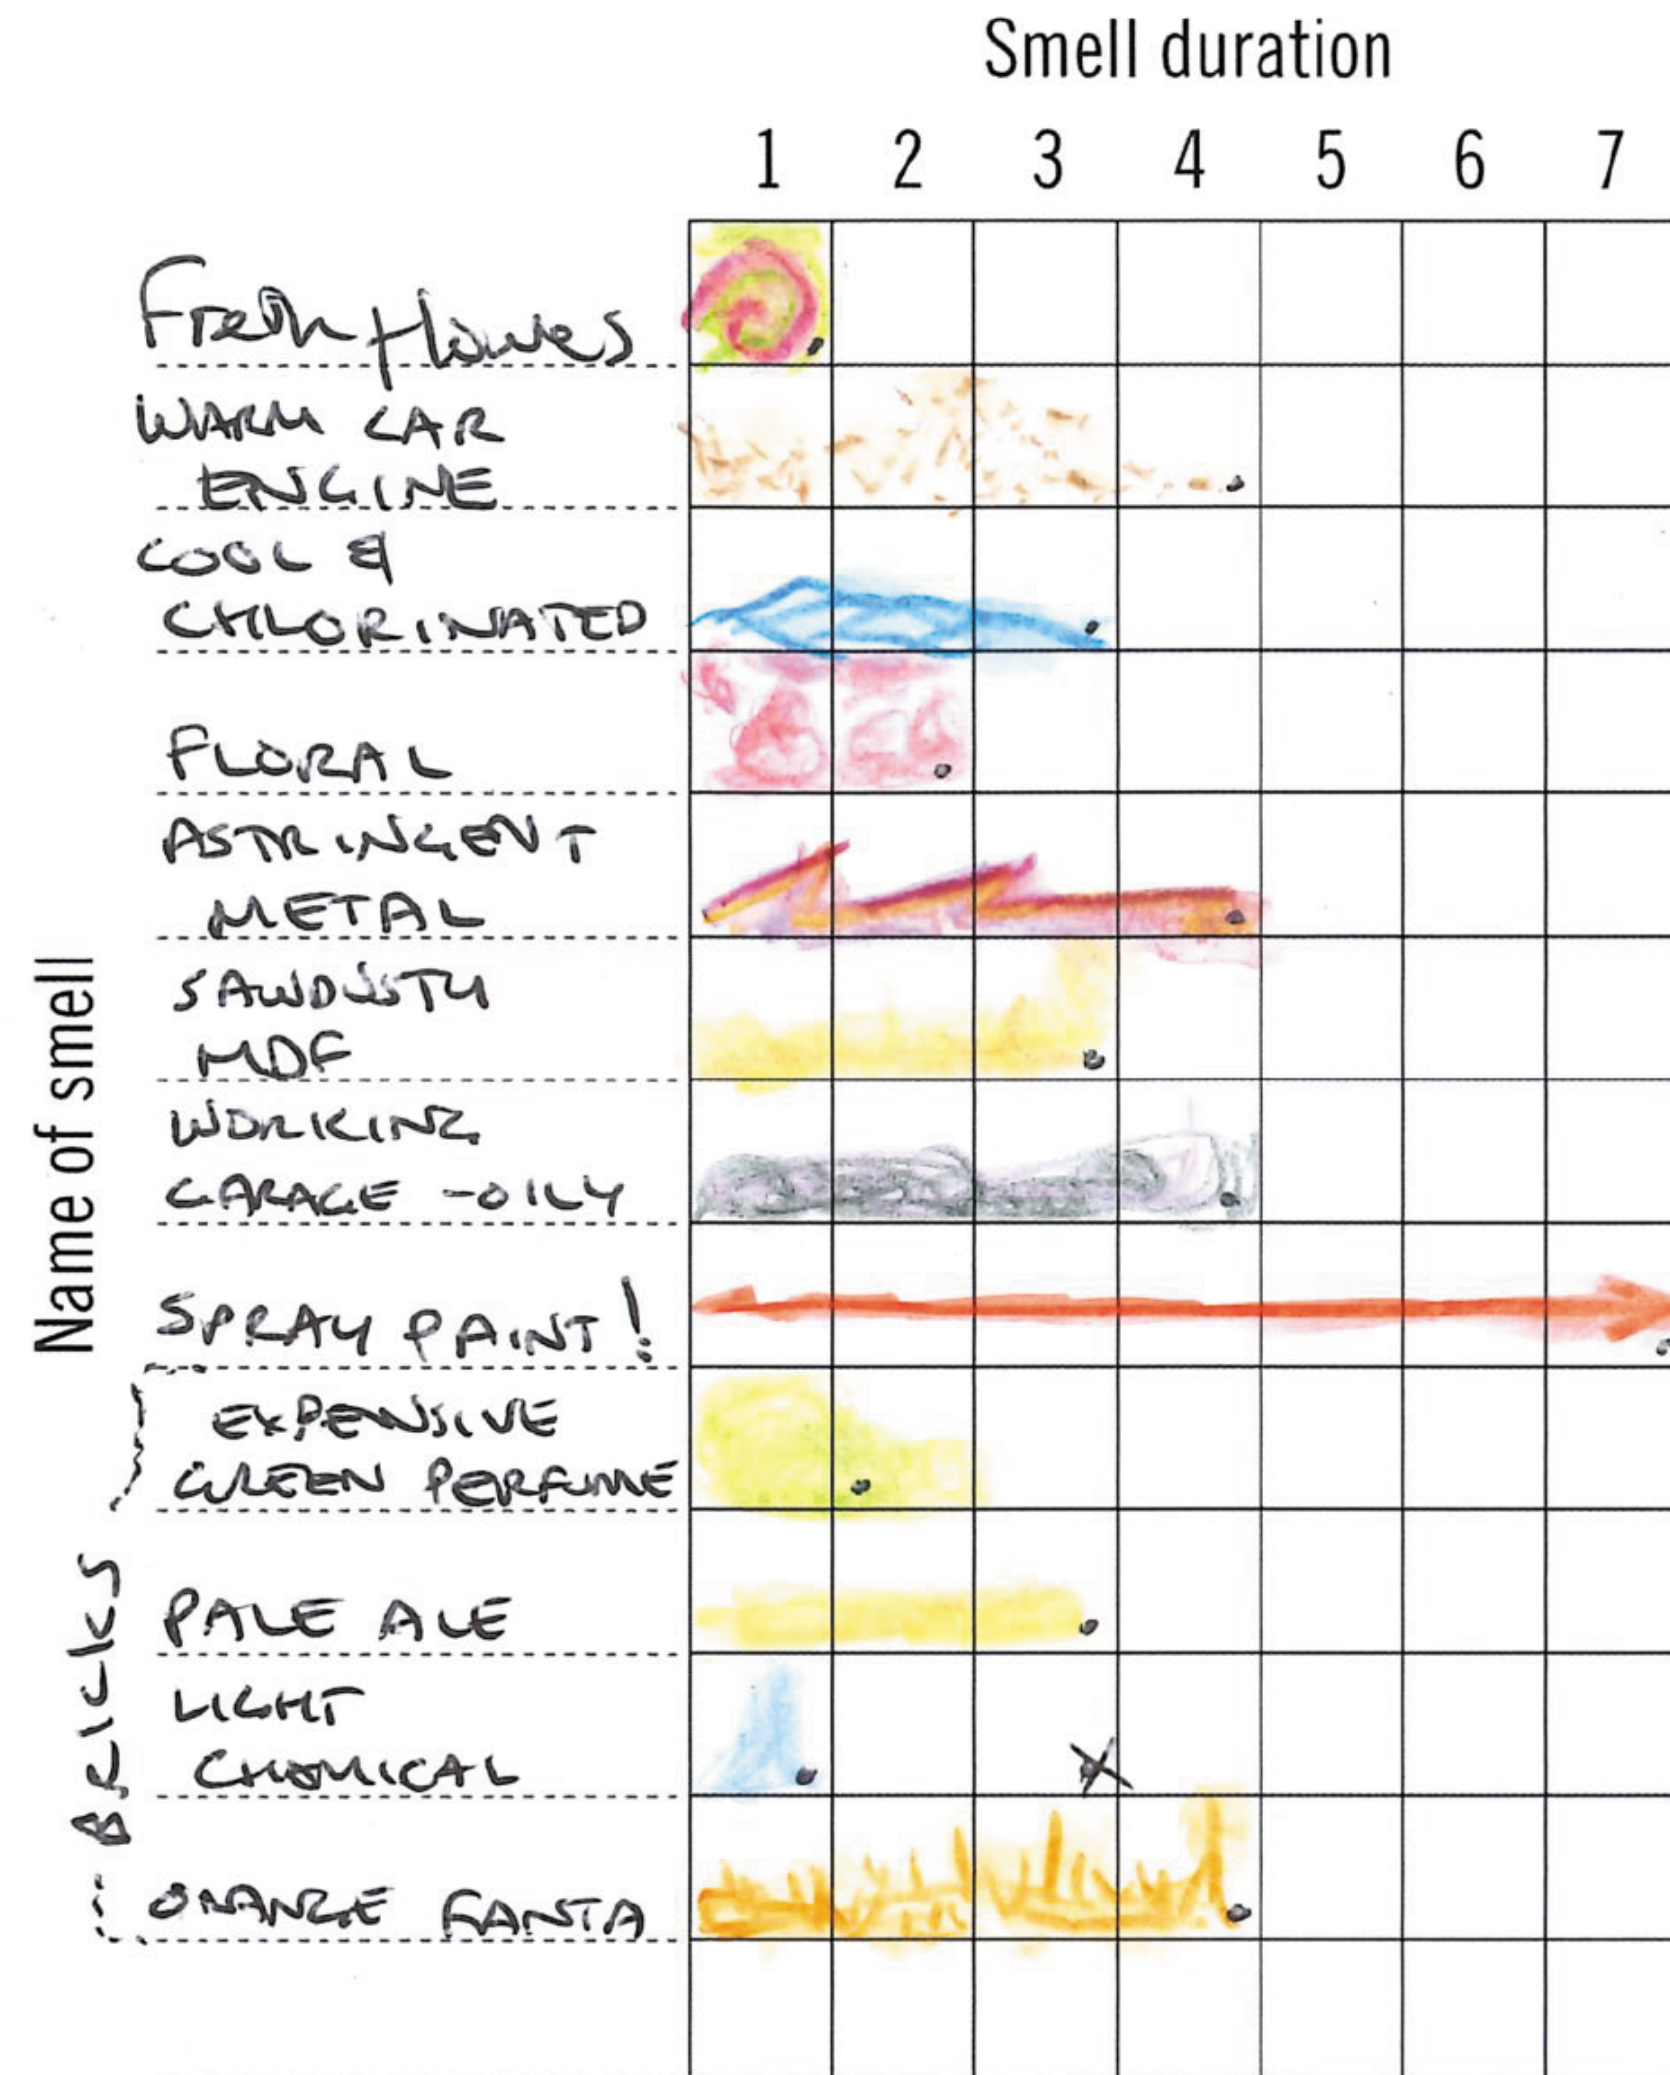 Smell duration
1 2 3 4 5 6 7
Name of smell
Fresh flowers
WARM CAR
ENGINE
COOL &
CHLORINATED
FLORAL
ASTRINGENT
METAL
SAWDUSTY
MDF
WORKING
GARAGE - OILY
SPRAY PAINT!
EXPENSIVE
GREEN PERFUME
BRICKS
PALE ALE
LIGHT
CHEMICAL
ORANGE FANTA